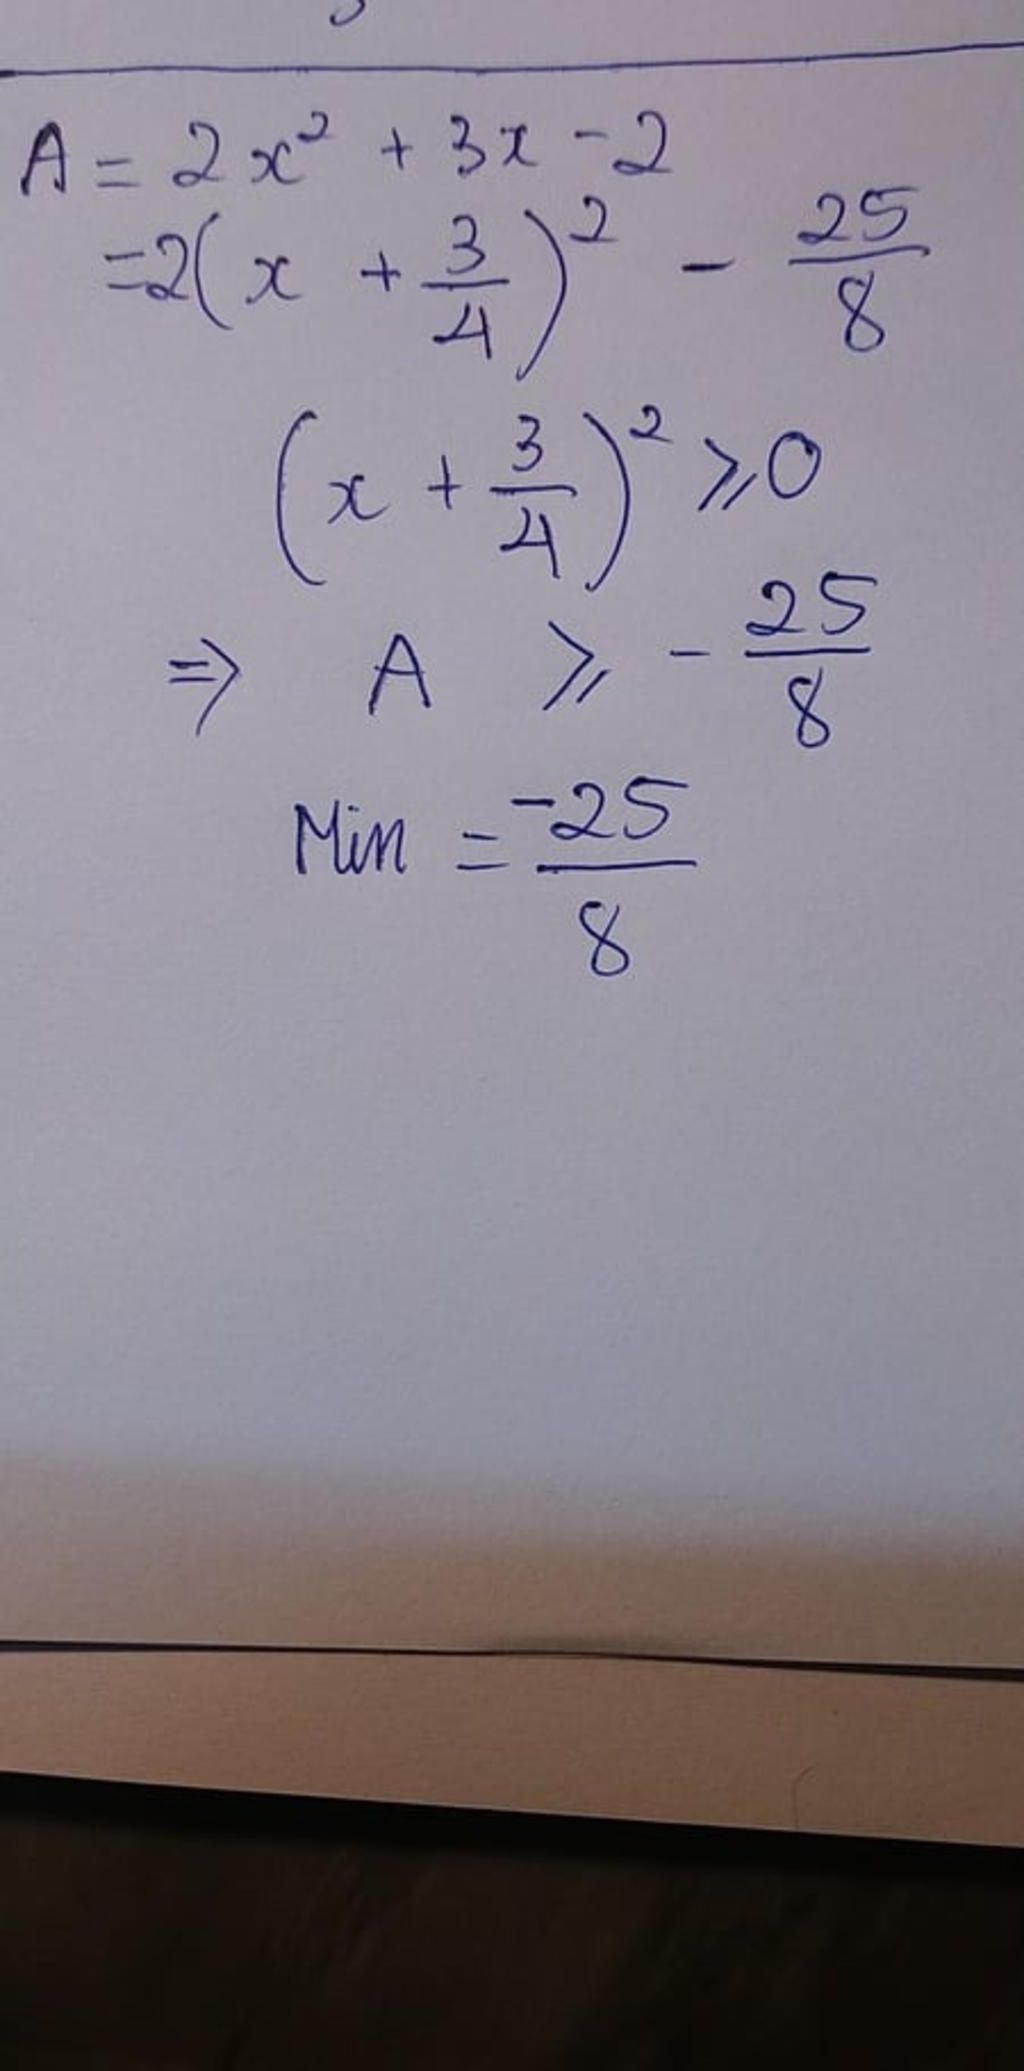 A = 2x² + 3x - 2
= 2(x + 3/4)² - 25/8
(x + 3/4)² ⩾ 0
⇒ A ⩾ - 25/8
Min = -25/8